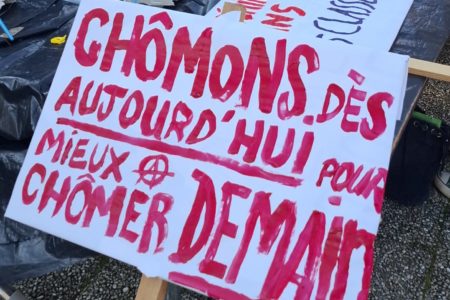 CHÔMONS DÈS
AUJOURD'HUI POUR
MIEUX
CHÔMER DEMAIN
CLASSE